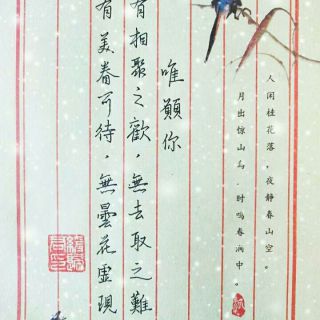 人闲桂花落，夜静春山空。
月出惊山鸟，时鸣春涧中。
唯願你
有相聚之歡，無去取之難
有美眷可待，無曇花虛現